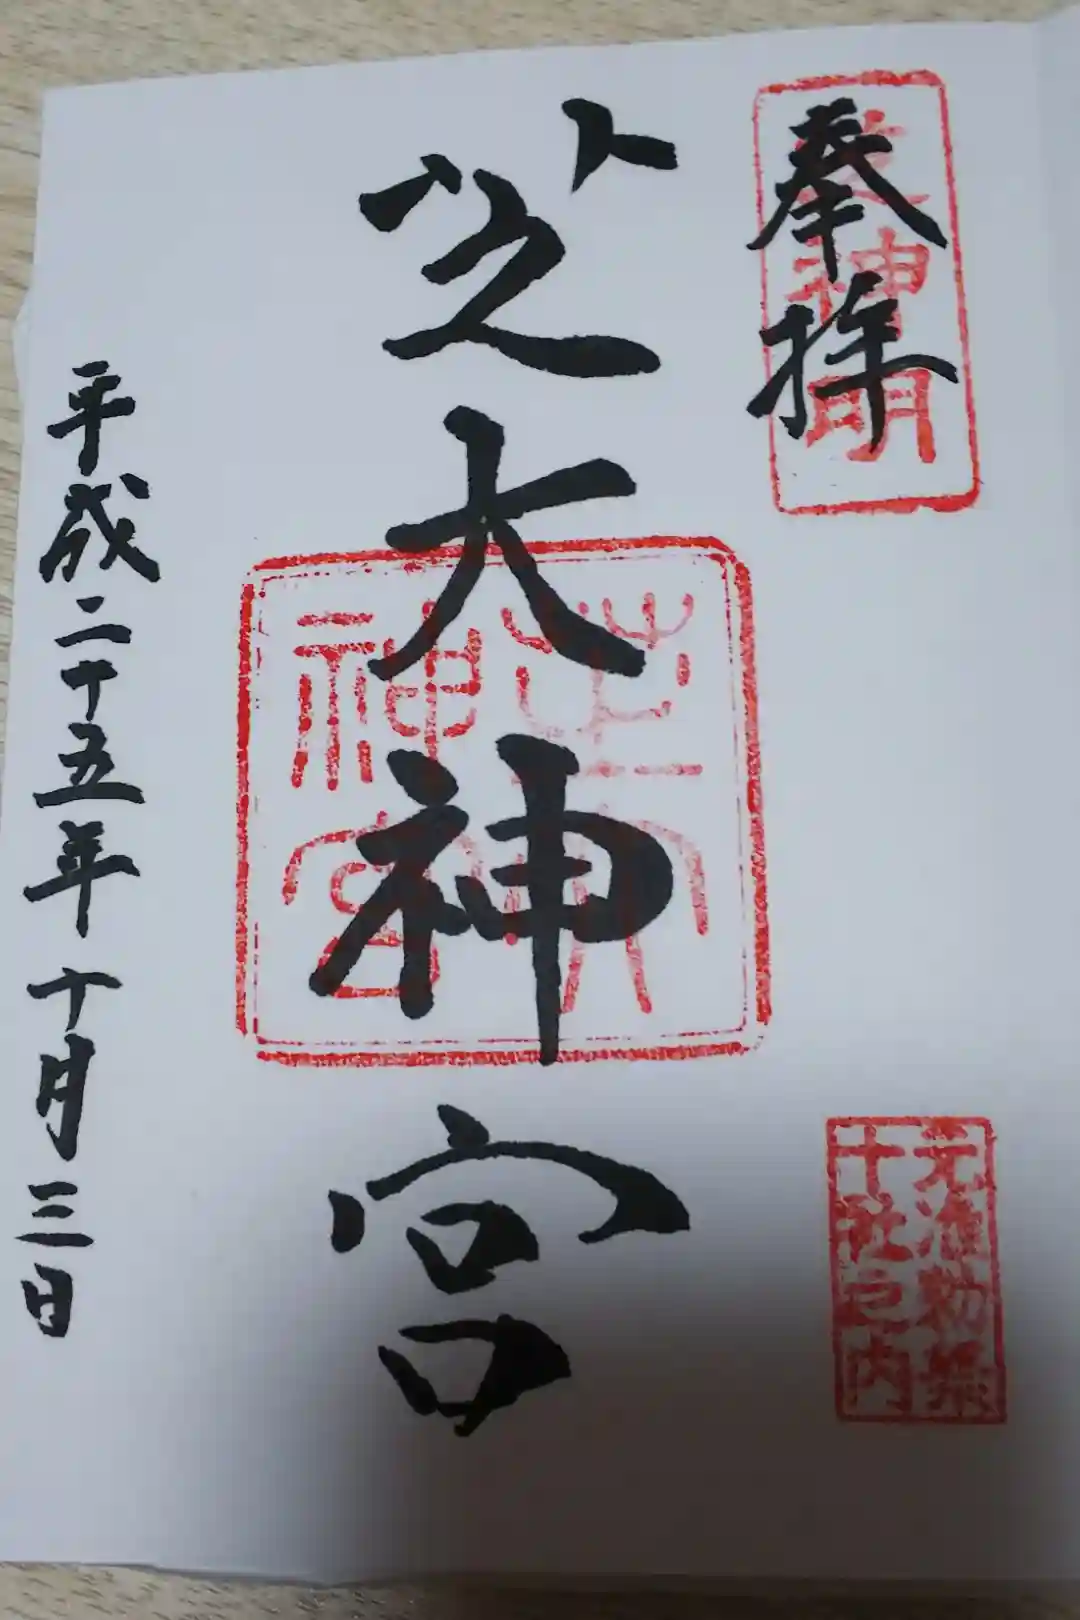 奉拝
芝神明
元准勅祭
十社之内
芝大神宮
芝大
神宮
平成二十五年十月三日